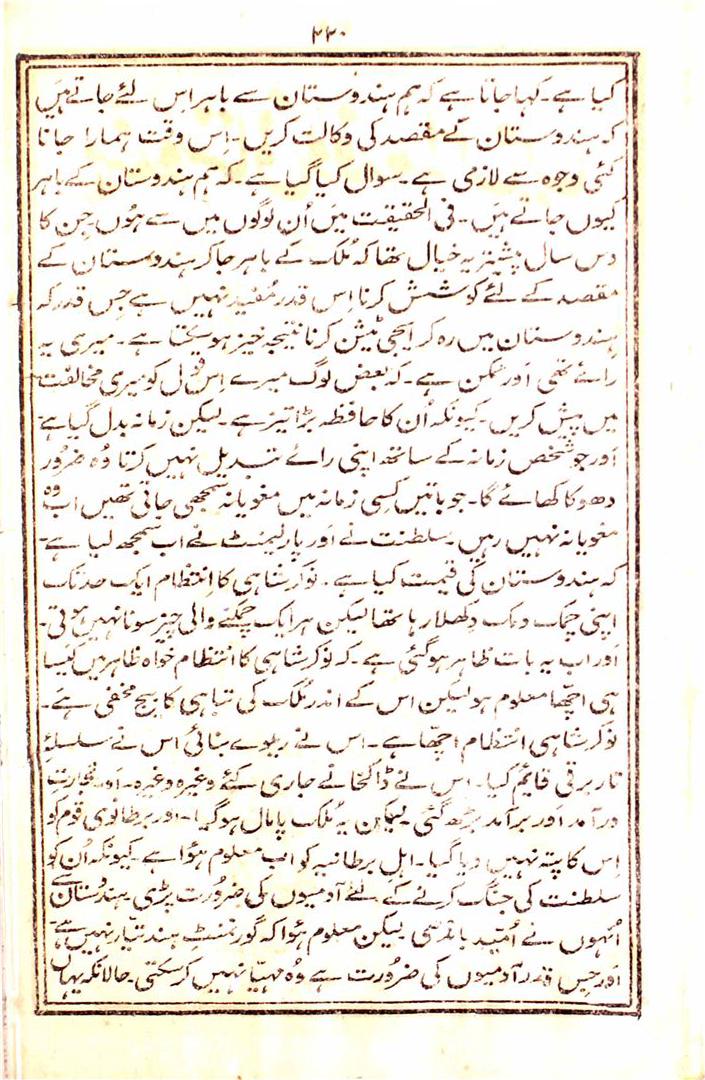 ۲۲۰
کیا ہے۔ کہا جاتا ہے کہ ہم ہندوستان سے باہر اِس لئے جاتے ہیں
کہ ہندوستان کے مقصد کی وکالت کریں۔ اِس وقت ہمارا جانا
کئی وجوہ سے لازمی ہے۔ سوال کیا گیا ہے۔ کہ ہم ہندوستان کے باہر
کیوں جاتے ہیں۔ فی الحقیقت میں اُن لوگوں میں سے ہُوں جن کا
دس سال پیشتر یہ خیال تھا کہ مُلک کے باہر جا کر ہندوستان کے
مقصد کے لئے کوشش کرنا اِس قدر مُفید نہیں ہے جس قدر کہ
ہندوستان میں رہ کر ایجی ٹیشن کرنا نتیجہ خیز ہو سکتا ہے۔ میری یہ
رائے تھی اَور ممکن ہے۔ کہ بعض لوگ میرے اِس قول کو میری مخالفت
میں پیش کریں۔ کیونکہ اُن کا حافظہ بڑا تیز ہے۔ لیکن زمانہ بدل گیا ہے
اَور جو شخص زمانہ کے ساتھ اپنی رائے تبدیل نہیں کرتا وُہ ضرُور
دھوکا کھائے گا۔ جو باتیں کِسی زمانہ میں مغویانہ سمجھی جاتی تھیں اب وُہ
مغویانہ نہیں رہیں۔ سلطنت نے اَور پارلیمنٹ نے اب سمجھ لیا ہے۔
کہ ہندوستان کی قیمت کیا ہے۔ نوکر شاہی کا اِنتظام ایک حد تک
اپنی چمک دمک دِکھلا رہا تھا لیکن ہر ایک چمکنے والی چیز سونا نہیں ہوتی۔
اَور اب یہ بات ظاہر ہو گئی ہے۔ کہ نوکر شاہی کا انتظام خواہ ظاہر میں کیسا
ہی اچھا معلوم ہو لیکن اس کے اندر مُلک کی تباہی کا بیج مخفی ہے۔
نوکر شاہی انتظام اچھا ہے۔ اس نے ریلوے بنائی اس نے سلسلۂ
تار برقی قائم کیا۔ اس نے ڈاکخانے جاری کئے وغیرہ وغیرہ۔ اَور تجارت
درآمد اور برآمد بڑھ گئی۔ لیکن یہ مُلک پامال ہو گیا۔ اور برطانوی قوم کو
اِس کا پتہ نہیں دیا گیا۔ اہلِ برطانیہ کو اب معلوم ہؤا ہے۔ کیونکہ اُن کو
سلطنت کی جنگ کرنے کے لئے آدمیوں کی ضرُورت پڑی۔ ہندوستان سے
اُنہوں نے اُمّید باندھی۔ لیکن معلوم ہؤا کہ گورنمنٹ ہند تیار نہیں ہے
اور جس قدر آدمیوں کی ضرُورت ہے وُہ مہیّا نہیں کر سکتی۔ حالانکہ یہاں